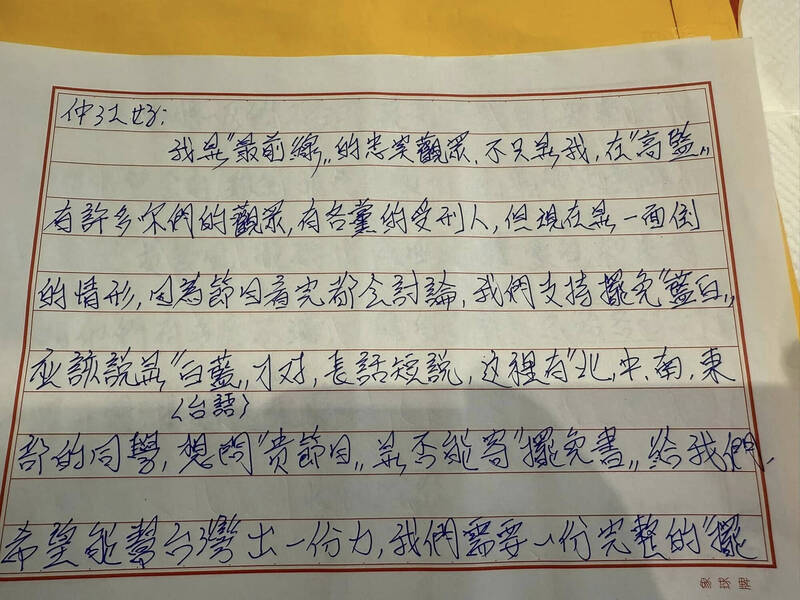 仲江好:
我是"最前線"的忠实觀眾,不只是我,在"高監"
有許多你們的觀眾,有各黨的受刑人,但現在是一面倒
的情形,因為節目看完都会討論,我們支持擺免"藍白"
应該說是"白藍"才对,長話短說,这裡有"北,中,南,東
(台語)
部的同學,想問"貴節目"是否能寄"擺免書"給我們,
希望能幫台灣出一份力,我們需要一份完整的"擺